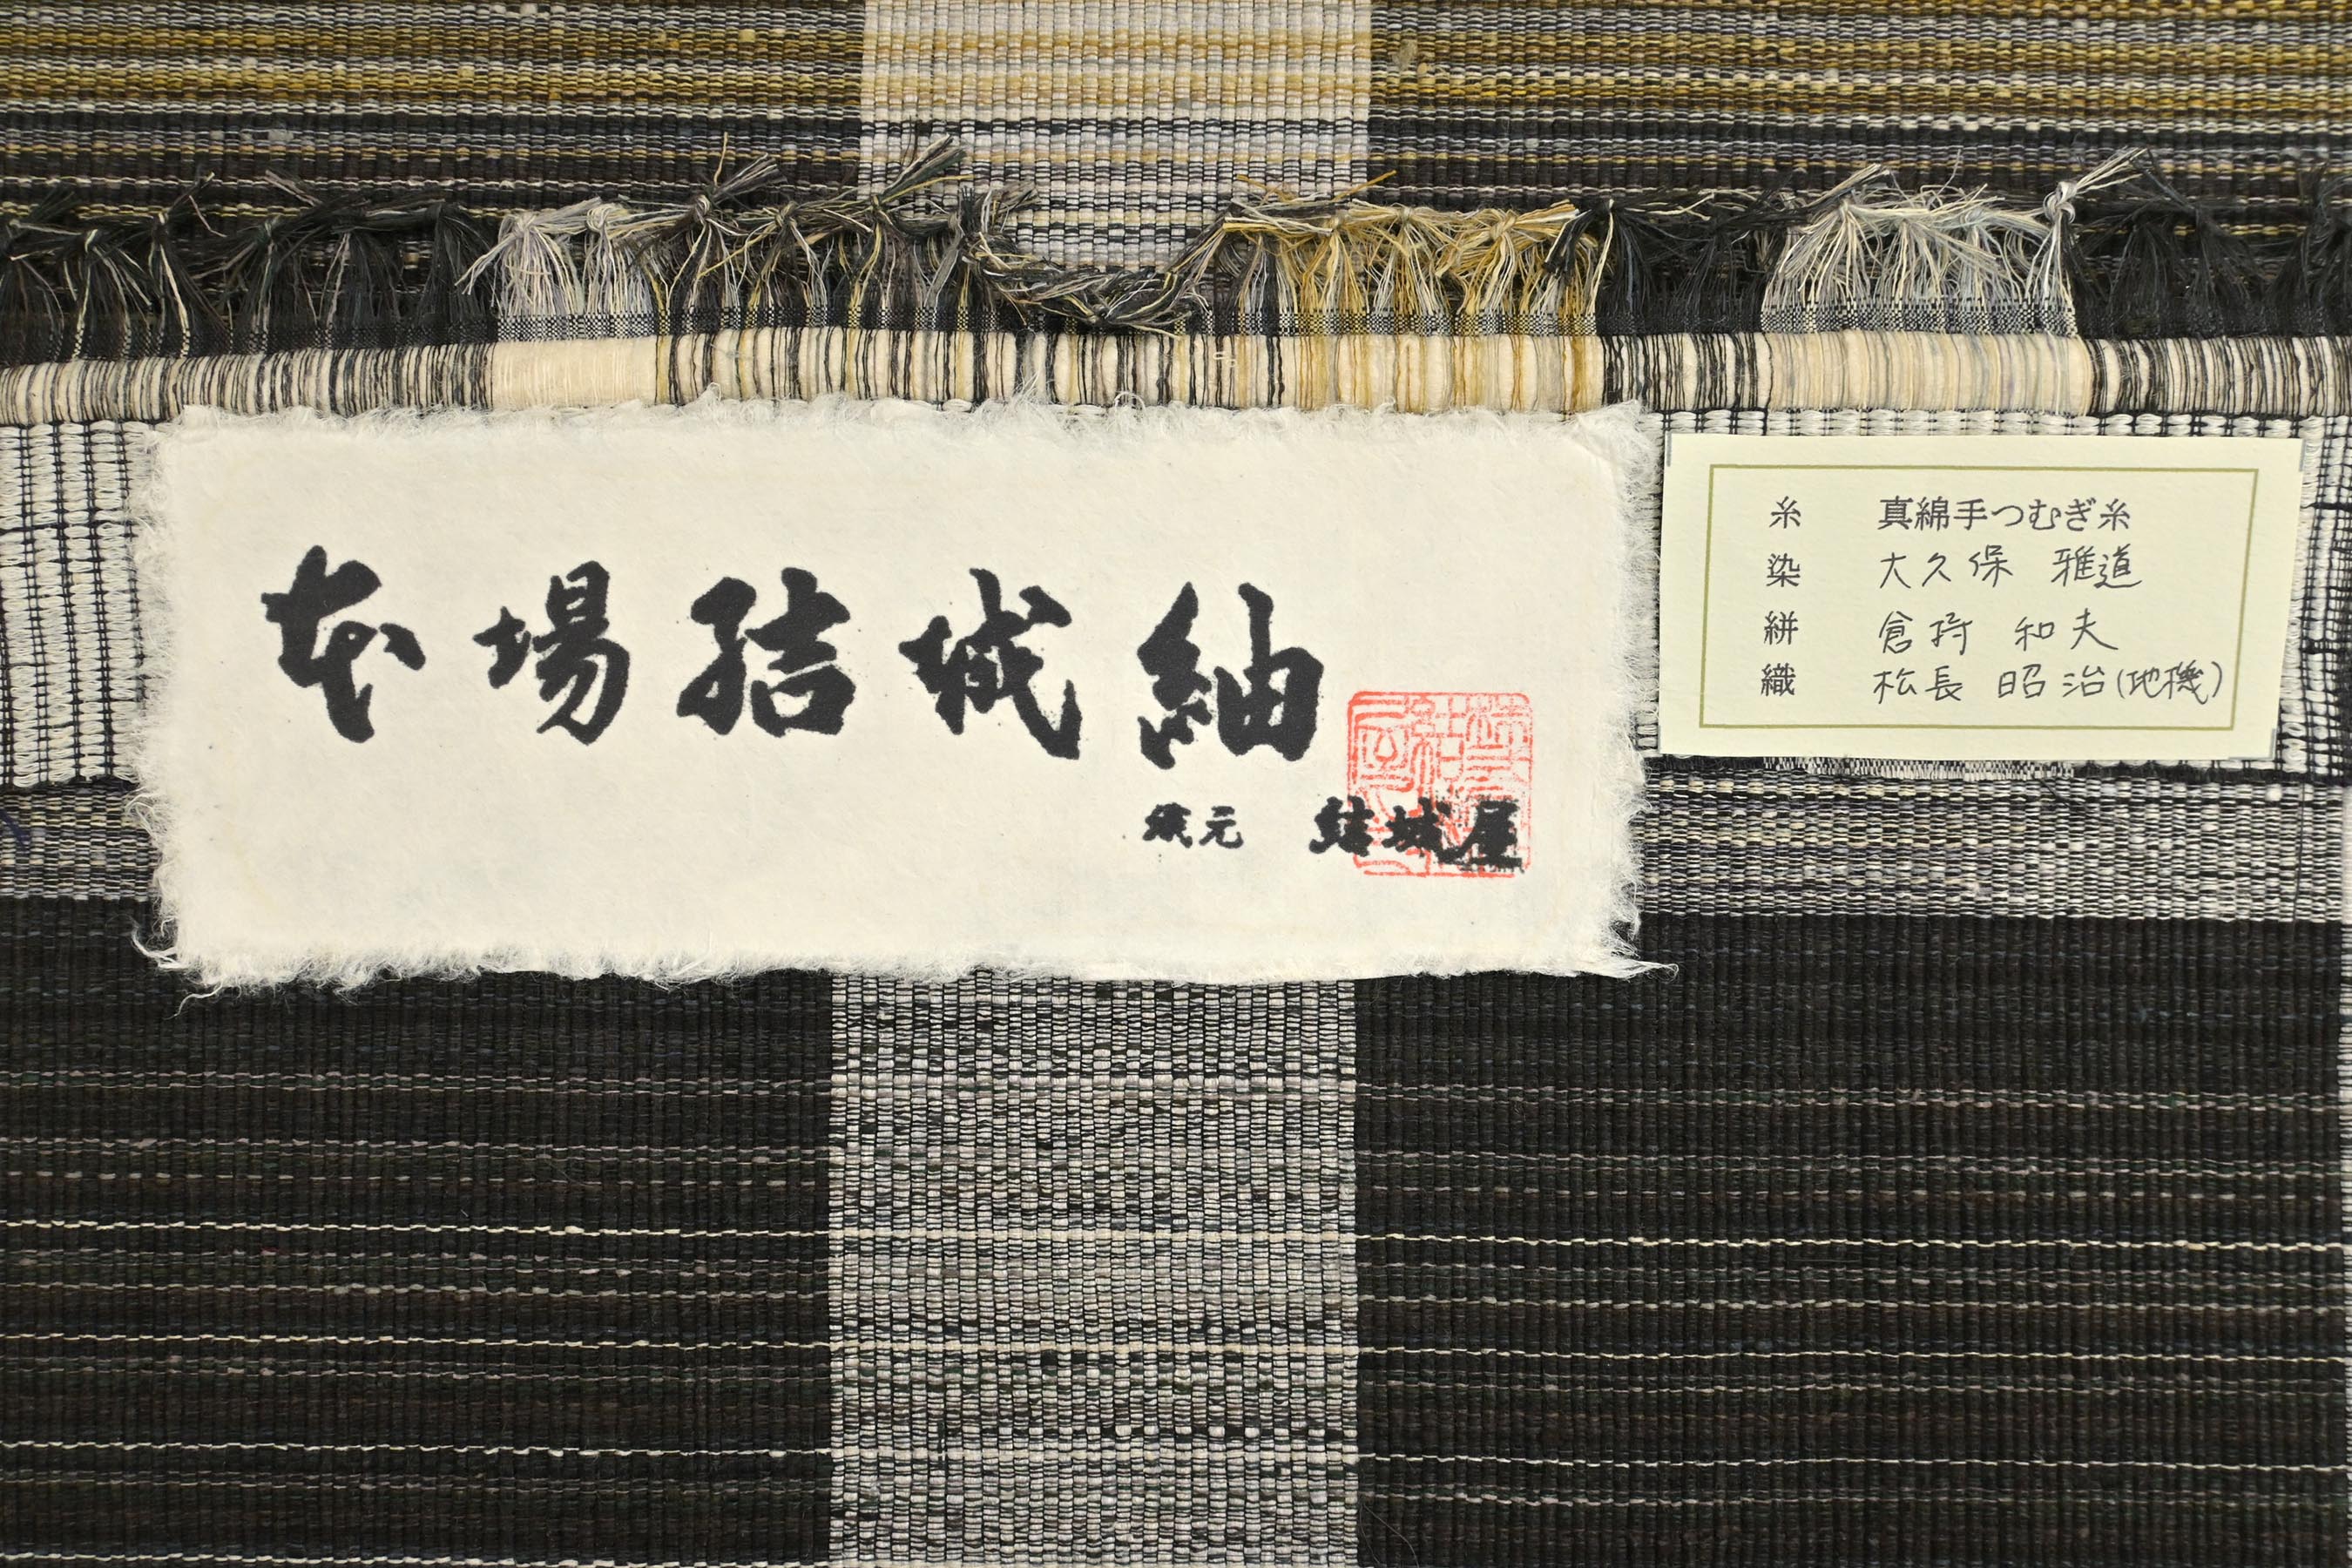 本場結城紬
織元 結城屋
糸 真綿手つむぎ糸
染 大久保 雅道
絣 倉持 和夫
織 松長 昭治(地機)